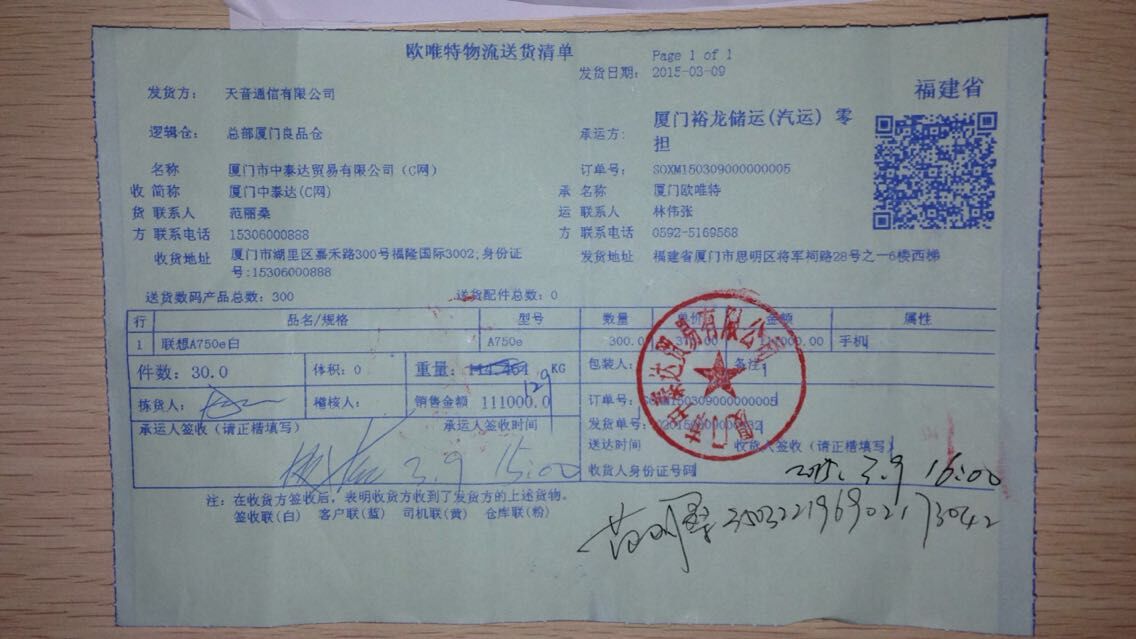 欧唯特物流送货清单
Page 1 of 1
发货日期: 2015-03-09
发货方: 天音通信有限公司
福建省
逻辑仓: 总部厦门良品仓
承运方: 厦门裕龙储运(汽运) 零担
名称 厦门市中泰达贸易有限公司 (C网)
订单号: SOXM150309000000005
收 简称 厦门中泰达(C网)
承 名称 厦门欧唯特
货 联系人 范丽桑
运 联系人 林伟张
方 联系电话 15306000888
方 联系电话 0592-5169568
收货地址 厦门市湖里区嘉禾路300号福隆国际3002;身份证
号:15306000888
发货地址 福建省厦门市思明区将军祠路28号之一6楼西梯
送货数码产品总数: 300 送货配件总数: 0
行 品名/规格 型号 数量 单价 金额 属性
1 联想A750e白 A750e 300.0 111000.00 手机
件数: 30.0 体积: 0 重量: 129 KG 包装人: 备注:
拣货人: 稽核人: 销售金额 111000.0 订单号: SOXM150309000000005
发货单号:
承运人签收 (请正楷填写) 承运人签收时间 送达时间 收货人签收 (请正楷填写)
3.9 15:00
收货人身份证号码
2015.3.9 16:00
注: 在收货方签收后, 表明收货方收到了发货方的上述货物。
签收联(白) 客户联(蓝) 司机联(黄) 仓库联(粉)
350322196902173042
厦门中泰达贸易有限公司